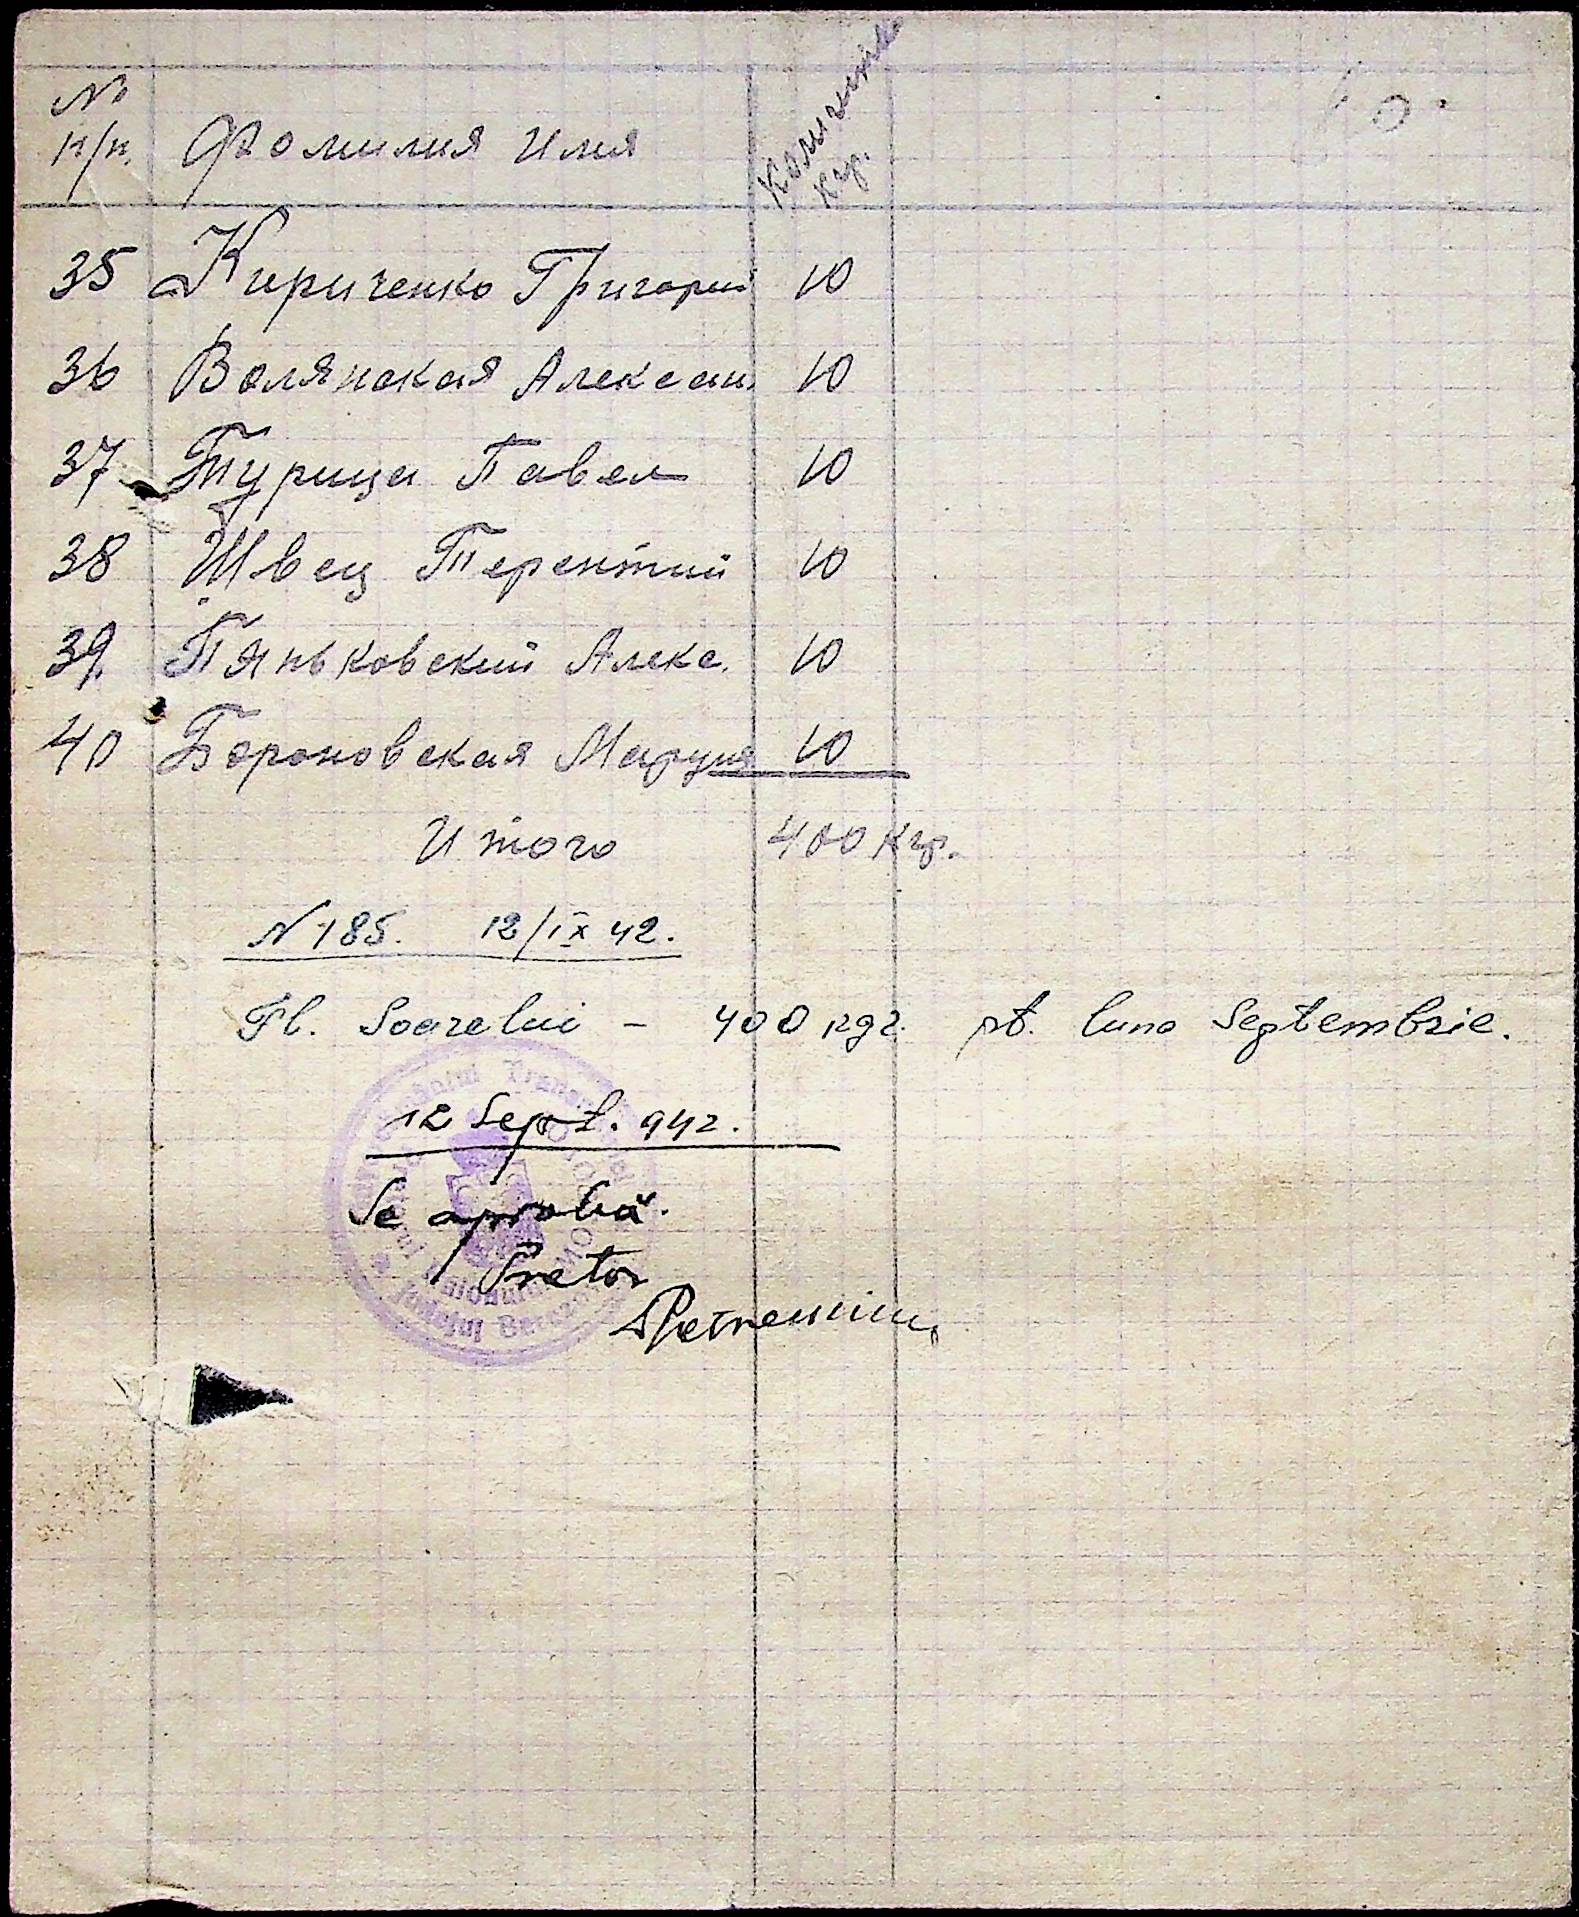 №
п/п. Фамилия Имя Количество кгр.
35 Кириченко Григорий 10
36 Волянская Алексан. 10
37 Турица Павел 10
38 Швец Терентий 10
39. Пяньковский Алекс. 10
40 Бороновская Маруня 10
Итого 400 кгр.
N 185. 12/IX 42.
Fl. Soarelui - 400 kgr. pt. luna Septembrie.
12 Sept. 942.
Se aprobă.
Pretor